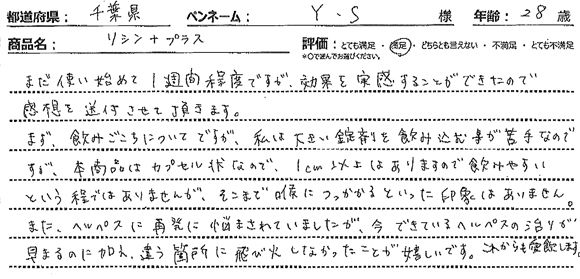 都道府県： 千葉県 ペンネーム： Y.S 様 年齢： 28 歳
商品名： リシン＋プラス 評価：とても満足・満足・どちらとも言えない・不満足・とても不満足
*○で選んでお選びください。
まだ使い始めて1週間程度ですが、効果を実感することができたので
感想を送付させて頂きます。
まず、飲みごこちについてですが、私は大きい錠剤を飲み込む事が苦手なので
すが、本商品はカプセル状なので、1cm以上はありますので飲みやすい
という程ではありませんが、そこまで喉につっかかるといった印象はありません。
また、ヘルペスに再発に悩まされていましたが、今できているヘルペスの治りが
早まるのに加え、違う箇所に飛び火しなかったことが嬉しいです。これからも愛飲します。